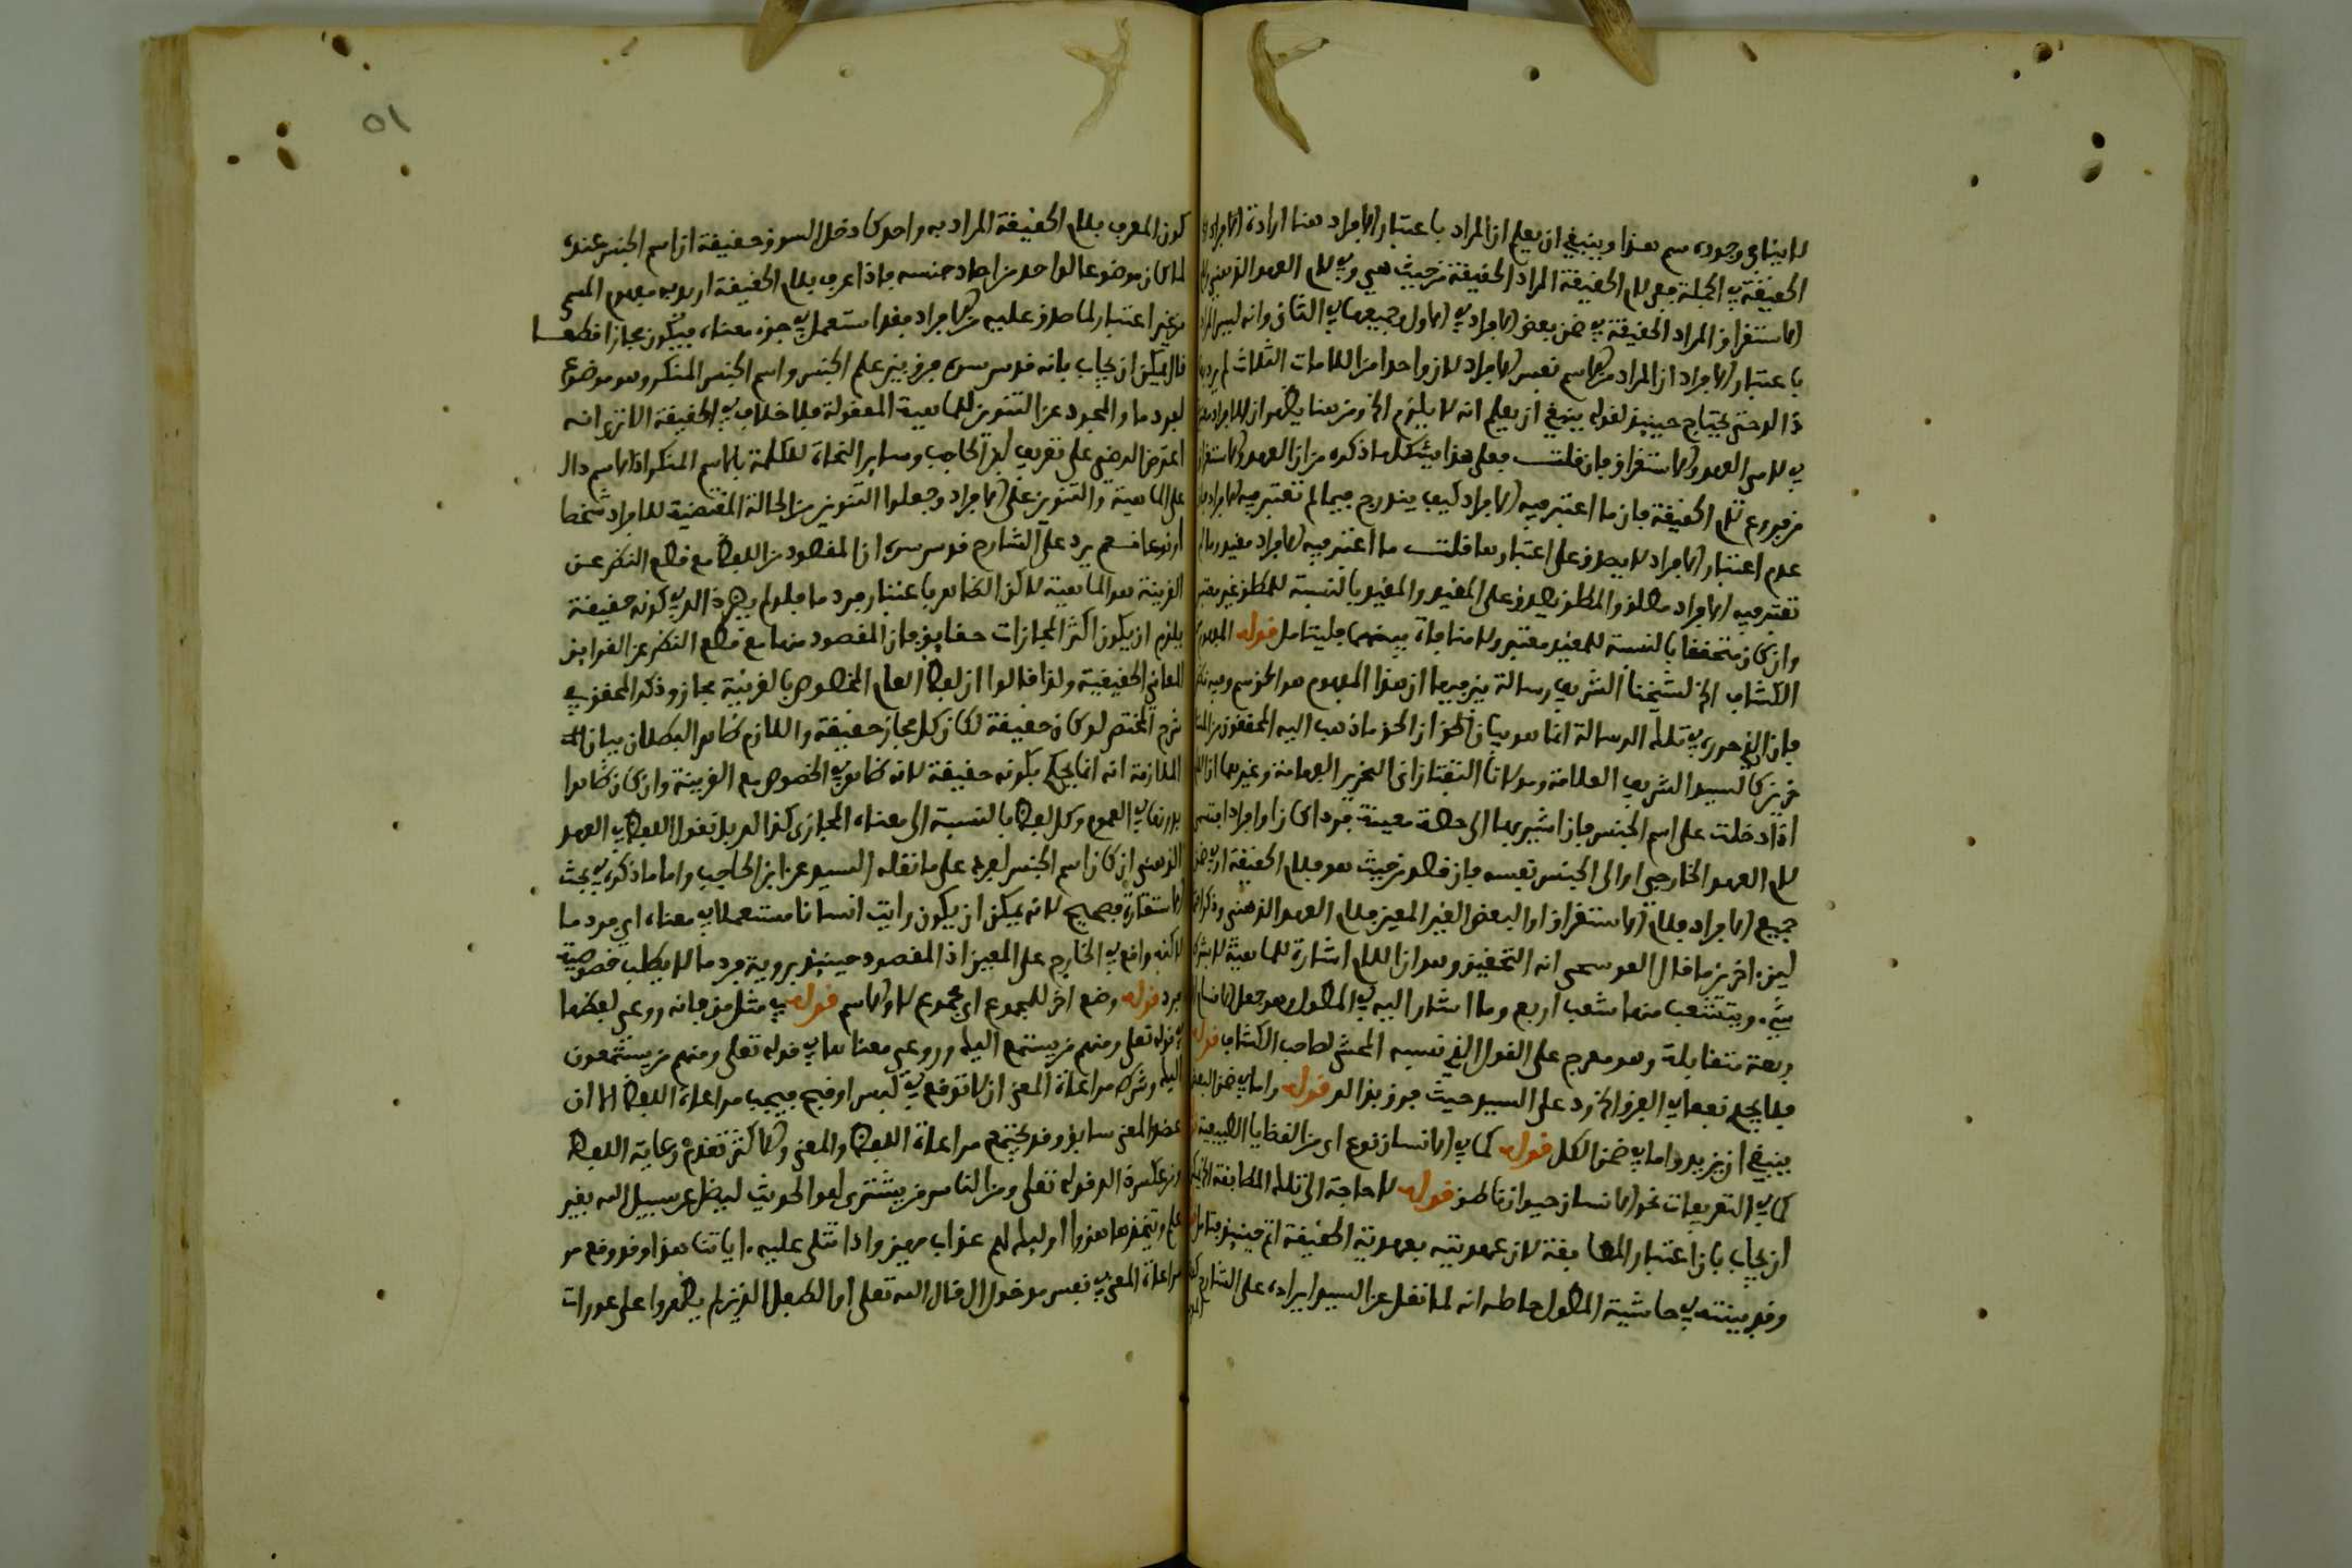 لا ينافي وجوده سم هذا وينبغي ان يعلم ان المراد باعتبار الافراد هنا ارادة الافراد
الحقيقة في الجملة ففي لام الحقيقة المراد الحقيقة من حيث هي وفي لام العهد الذهني
الاستغراق المراد الحقيقة في ضمن بعض الافراد في الاول وجميعها في الثاني وانه ليس المراد
باعتبار الافراد ان المراد من الاسم نفس الافراد لان واحدا من اللامات الثلاث لم
ذا الد حتى يحتاج حينئذ لقوله ينبغي ان يعلم انه لا يلزم الخ ومن هنا يظهر ان
في لامي العهد والاستغراق فان قلت فعلى هذا يشكل ما ذكره من ان العهد والاستغراق
من فروع لام الحقيقة فان ما اعتبر فيه الافراد كيف يندرج فيما لم تعتبر فيه الافراد
عدم اعتبار الافراد لا يصدق على اعتبارها قلت ما اعتبر فيه الافراد مقيد وما لم
تعتبر فيه الافراد مطلق والمطلق يصدق على المقيد والمقيد بالنسبة للمطلق غير معتبر
وان كان متحققا بالنسبة للمقيد معتبر ولا منافاة بينهما فليتامل قوله المفهوم
الكشاف الخ لشيخنا الشريف رسالة بين فيها ان هذا المفهوم هو الحق سم وفيه نظر
فان الذي حرره في تلك الرسالة انما هو بيان الحق ان الحق ما ذهب اليه المحققون من المتا
خرين كالسيد الشريف العلامة ومولانا التفتازاني النحرير الفهامة وغيرهما ان اللام
اذا دخلت على اسم الجنس فاذا اشير بها الى حصة معينة فردا كان او افرادا فتسمى
لام العهد الخارجي او الى الجنس نفسه فان قصد من حيث هو فلام الحقيقة او في ضمن
جميع الافراد فلام الاستغراق او البعض الغير المعين فلام العهد الذهني وذكر
ليزه اخر من ما قال الفوسحي انه التحقيق وهو ان اللام اشارة للماهية لا بشرط
شيء ويتشعب منها شعب اربع وما اشار اليه في المطول وهو جعل الاقسام
ربعة متقابلة وهو مفرج على القول الذي نسبه المحشي لصاحب الكشاف قوله
فلا يجي نفعا في الفرق الخ رد على السيد حيث فرق بذا الد قوله واما في ضمن البعض
ينبغي ان يزيد واما في ضمن الكل قوله كما في الانسان نوع اي من القضايا الطبيعية
كما في التعريفات نحو الانسان حيوان ناطق قوله لا حاجة الى تلك المطابقة الخ يمكن
ان يجاب بان اعتبار المطابقة لان عهديته بعهدية الحقيقة اتم حينئذ فتامل
وقد بينته في حاشية المطول حاصله انه لما نقل عن السيد ايراده على الشارح
٥١
كون المعرف بلام الحقيقة المراد به واحد كادخل السوق حقيقة ان اسم الجنس عنده
لما كان موضوعا لواحد من احاد جنسه فاذا عرف بلام الحقيقة اريد به مفهوم المسمى
من غير اعتبار لما صدق عليه من الافراد فقد استعمل في جزء معناه فيكون مجازا قطعا
قال يمكن ان يجاب بانه قدس سره فرق بين علم الجنس واسم الجنس المنكر وهو موضوع
لفرد ما والمجرد عن التنوين للماهية المعقولة فلا خلاف في الحقيقة الا ترى انه
اعترض الرضي على تعريف ابن الحاجب وساير النحاة للكلمة بالاسم المنكر اذ الاسم دال
على الماهية والتنوين على الافراد وجعلوا التنوين من الحالة المقتضية للافراد شخصا
او نوعا نعم يرد على الشارح قدس سره ان المقصود من اللفظ مع قطع النظر عن
القرينة هو الماهية لاكن الظاهر باعتبار فرد ما فلو لم يضر ذا الد في كونه حقيقة
يلزم ان يكون اكثر المجازات حقايق فان المقصود منها مع قطع النظر عن القراين
المعاني الحقيقية ولذا قالوا ان لفظ العام المخصوص بالقرينة مجاز وذكر المحقق في
شرح المختصر لو كان حقيقة لكان كل مجاز حقيقة واللازم ظاهر البطلان بيان
الملازمة انه انما يحكم بكونه حقيقة لانه ظاهر في الخصوص مع القرينة وان كان ظاهرا
بدونها في العموم وكل لفظ بالنسبة الى معناه المجازي كذا الد بل نقول اللفظ في العهد
الذهني ان كان اسم الجنس لفرد على ما نقله السيد عن ابن الحاجب واما ما ذكره في بحث
الاستعارة فصحيح لانه يمكن ان يكون رايت انسانا مستعملا في معناه اي فرد ما
لاكنه واقع في الخارج على المعين اذ المقصود حينئذ بروية فرد ما لا يطلب خصوصية
فرد قوله وضع اخر للمجموع اي مجموع لا والاسم قوله في مثل من فانه روعي لفظها
في قوله تعلى ومنهم من يستمع اليك وروعي معناها في قوله تعلى ومنهم من يستمعون
اليك وشرك مراعاة المعنى ان لا توقع في لبس او قبح فيجب مراعاة اللفظ الا ان
عضد المعنى سابق وقد يجتمع مراعاة اللفظ والمعنى والاكثر تقدم رعاية اللفظ
ومن عكسه الد قوله تعلى ومن الناس من يشتري لهو الحديث ليضل عن سبيل الله بغير
علم ويتخذها هزوا اوليك لهم عذاب مهين واذا تتلى عليه ءاياتنا هذا وقد وقع مر
مراعاة المعنى في نفس مدخول ال قال الله تعلى او الطفل الذين لم يظهروا على عورات